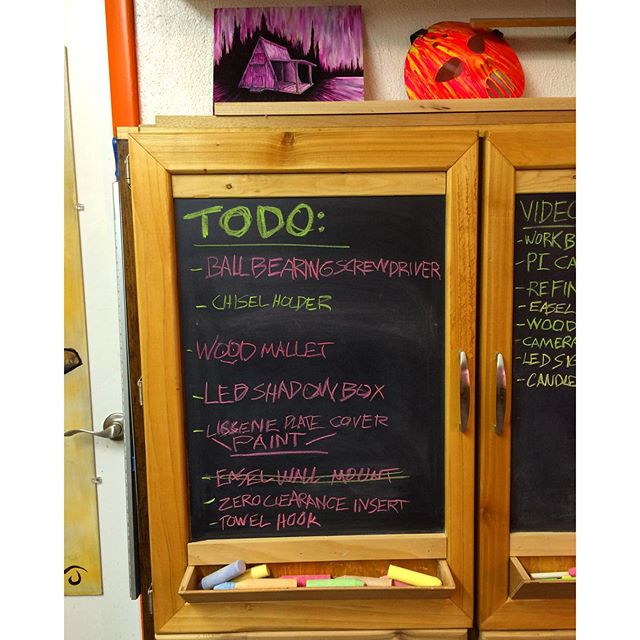 TODO:
- BALL BEARING SCREWDRIVER
- CHISEL HOLDER
- WOOD MALLET
- LED SHADOW BOX
- PLATE COVER
PAINT
- EASEL WALL MOUNT
- ZERO CLEARANCE INSERT
- TOWEL HOOK
VIDEO
- WORKB
- PI CA
- REFIN
- EASEL
- WOOD
- CAMERA
- LED SIG
- CANDLE